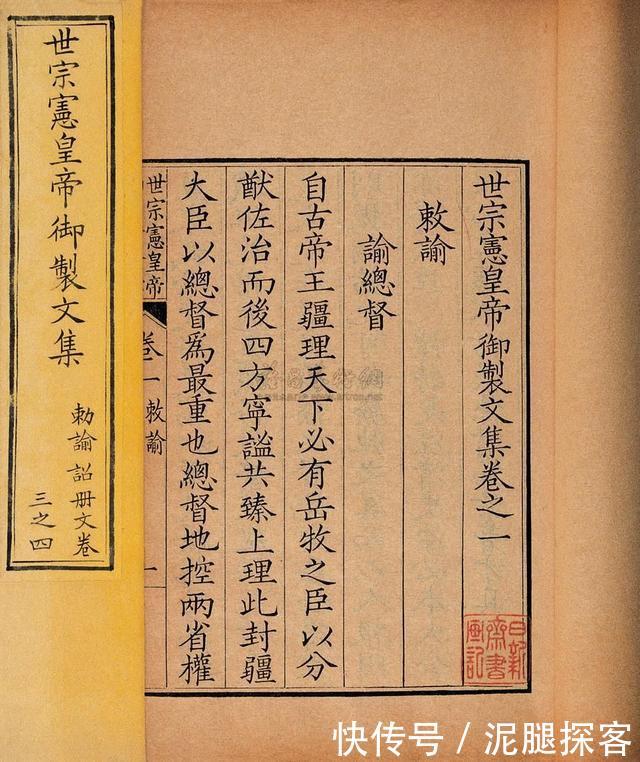 世宗憲皇帝御製文集
勅諭 詔冊文卷
三之四
世宗憲皇帝御製文集卷之一
敕諭
諭總督
自古帝王疆理天下必有岳牧之臣以分
猷佐治而後四方寧謐共臻上理此封疆
大臣以總督爲最重也總督地控兩省權
世宗憲皇帝
卷一 敕諭
一
日新
齋書
画記
快传号 / 泥腿探客